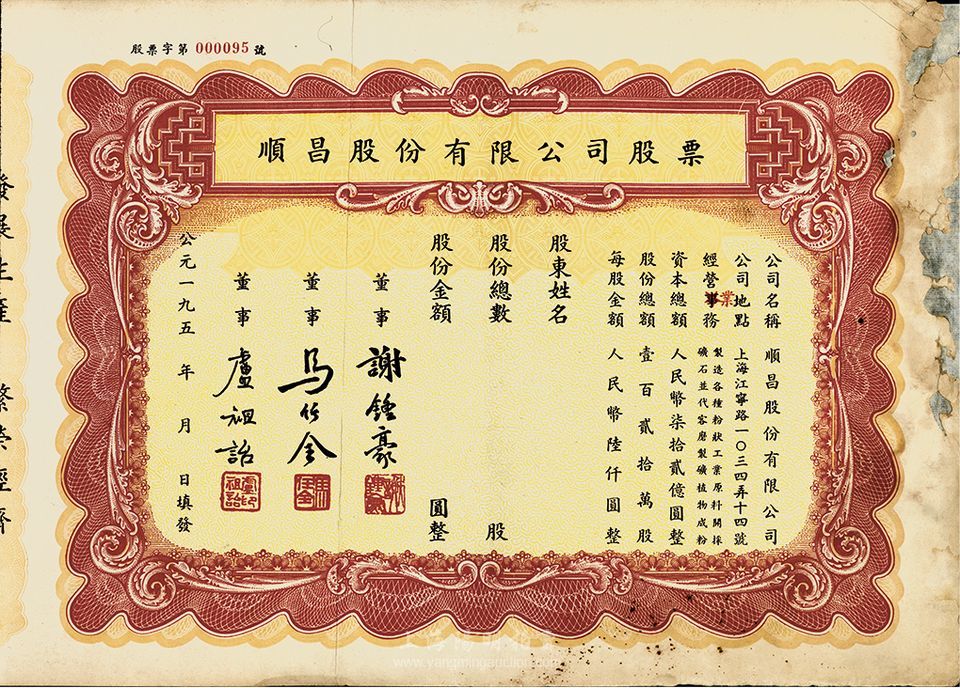 股票字第 000095 號
順昌股份有限公司股票
公司名稱 順昌股份有限公司
公司地點 上海江寧路一〇三四弄十四號
經營事務 製造各種粉狀工業原料開採
業
礦石並代客磨製礦植物成粉
資本總額 人民幣柒拾貳億圓整
股份總額 壹百貳拾萬股
每股金額 人民幣陸仟圓整
股東姓名
股份總數 股
股份金額 圓整
董事 謝鍾豪
董事 馬任全
董事 盧祖詒
盧祖詒印
馬任全
公元一九五 年 月 日填發
發展生產 繁榮經濟
上海陽明拍賣
www.yangmingauction.com